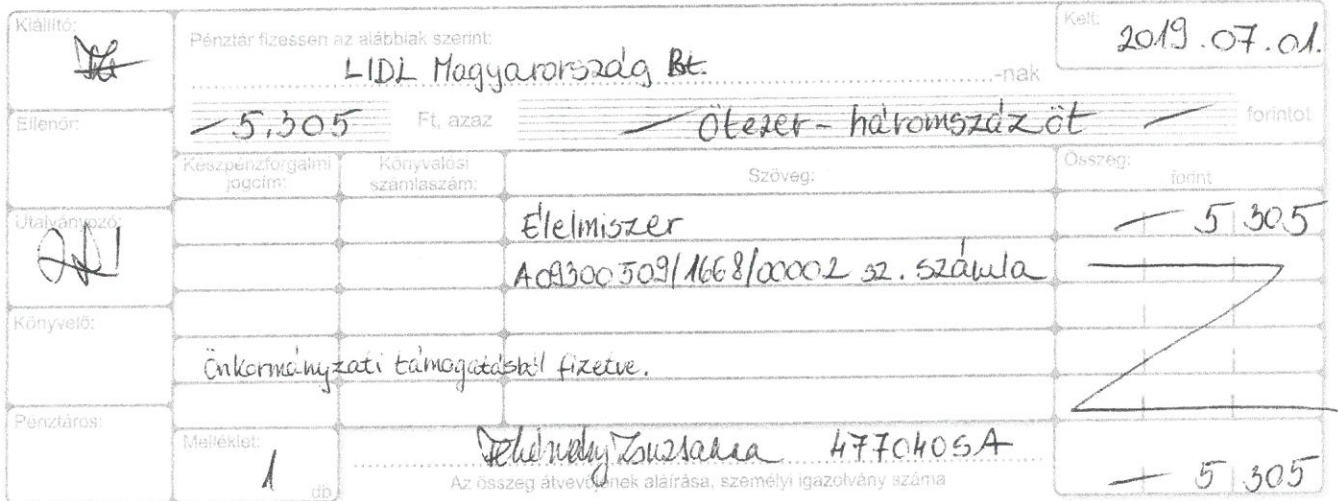 Kiállító:
Pénztár fizessen az alábbiak szerint:
Kelt:
2019.07.01.
LIDL Magyarország Bt. -nak
Ellenőr:
- 5.305 Ft, azaz - Ötezer - háromszáz öt - forintot
Készpénzforgalmi jogcím:
Könyvelési számlaszám:
Szöveg:
Összeg:
forint
Utalványozó:
Élelmiszer - 5 305
A09300509/1668/00002 sz. számla
Könyvelő:
Önkormányzati támogatásból fizetve.
Pénztáros:
Melléklet:
1 db
Zsuzsanna 477040SA
Az összeg átvevőjének aláírása, személyi igazolvány száma
- 5 305